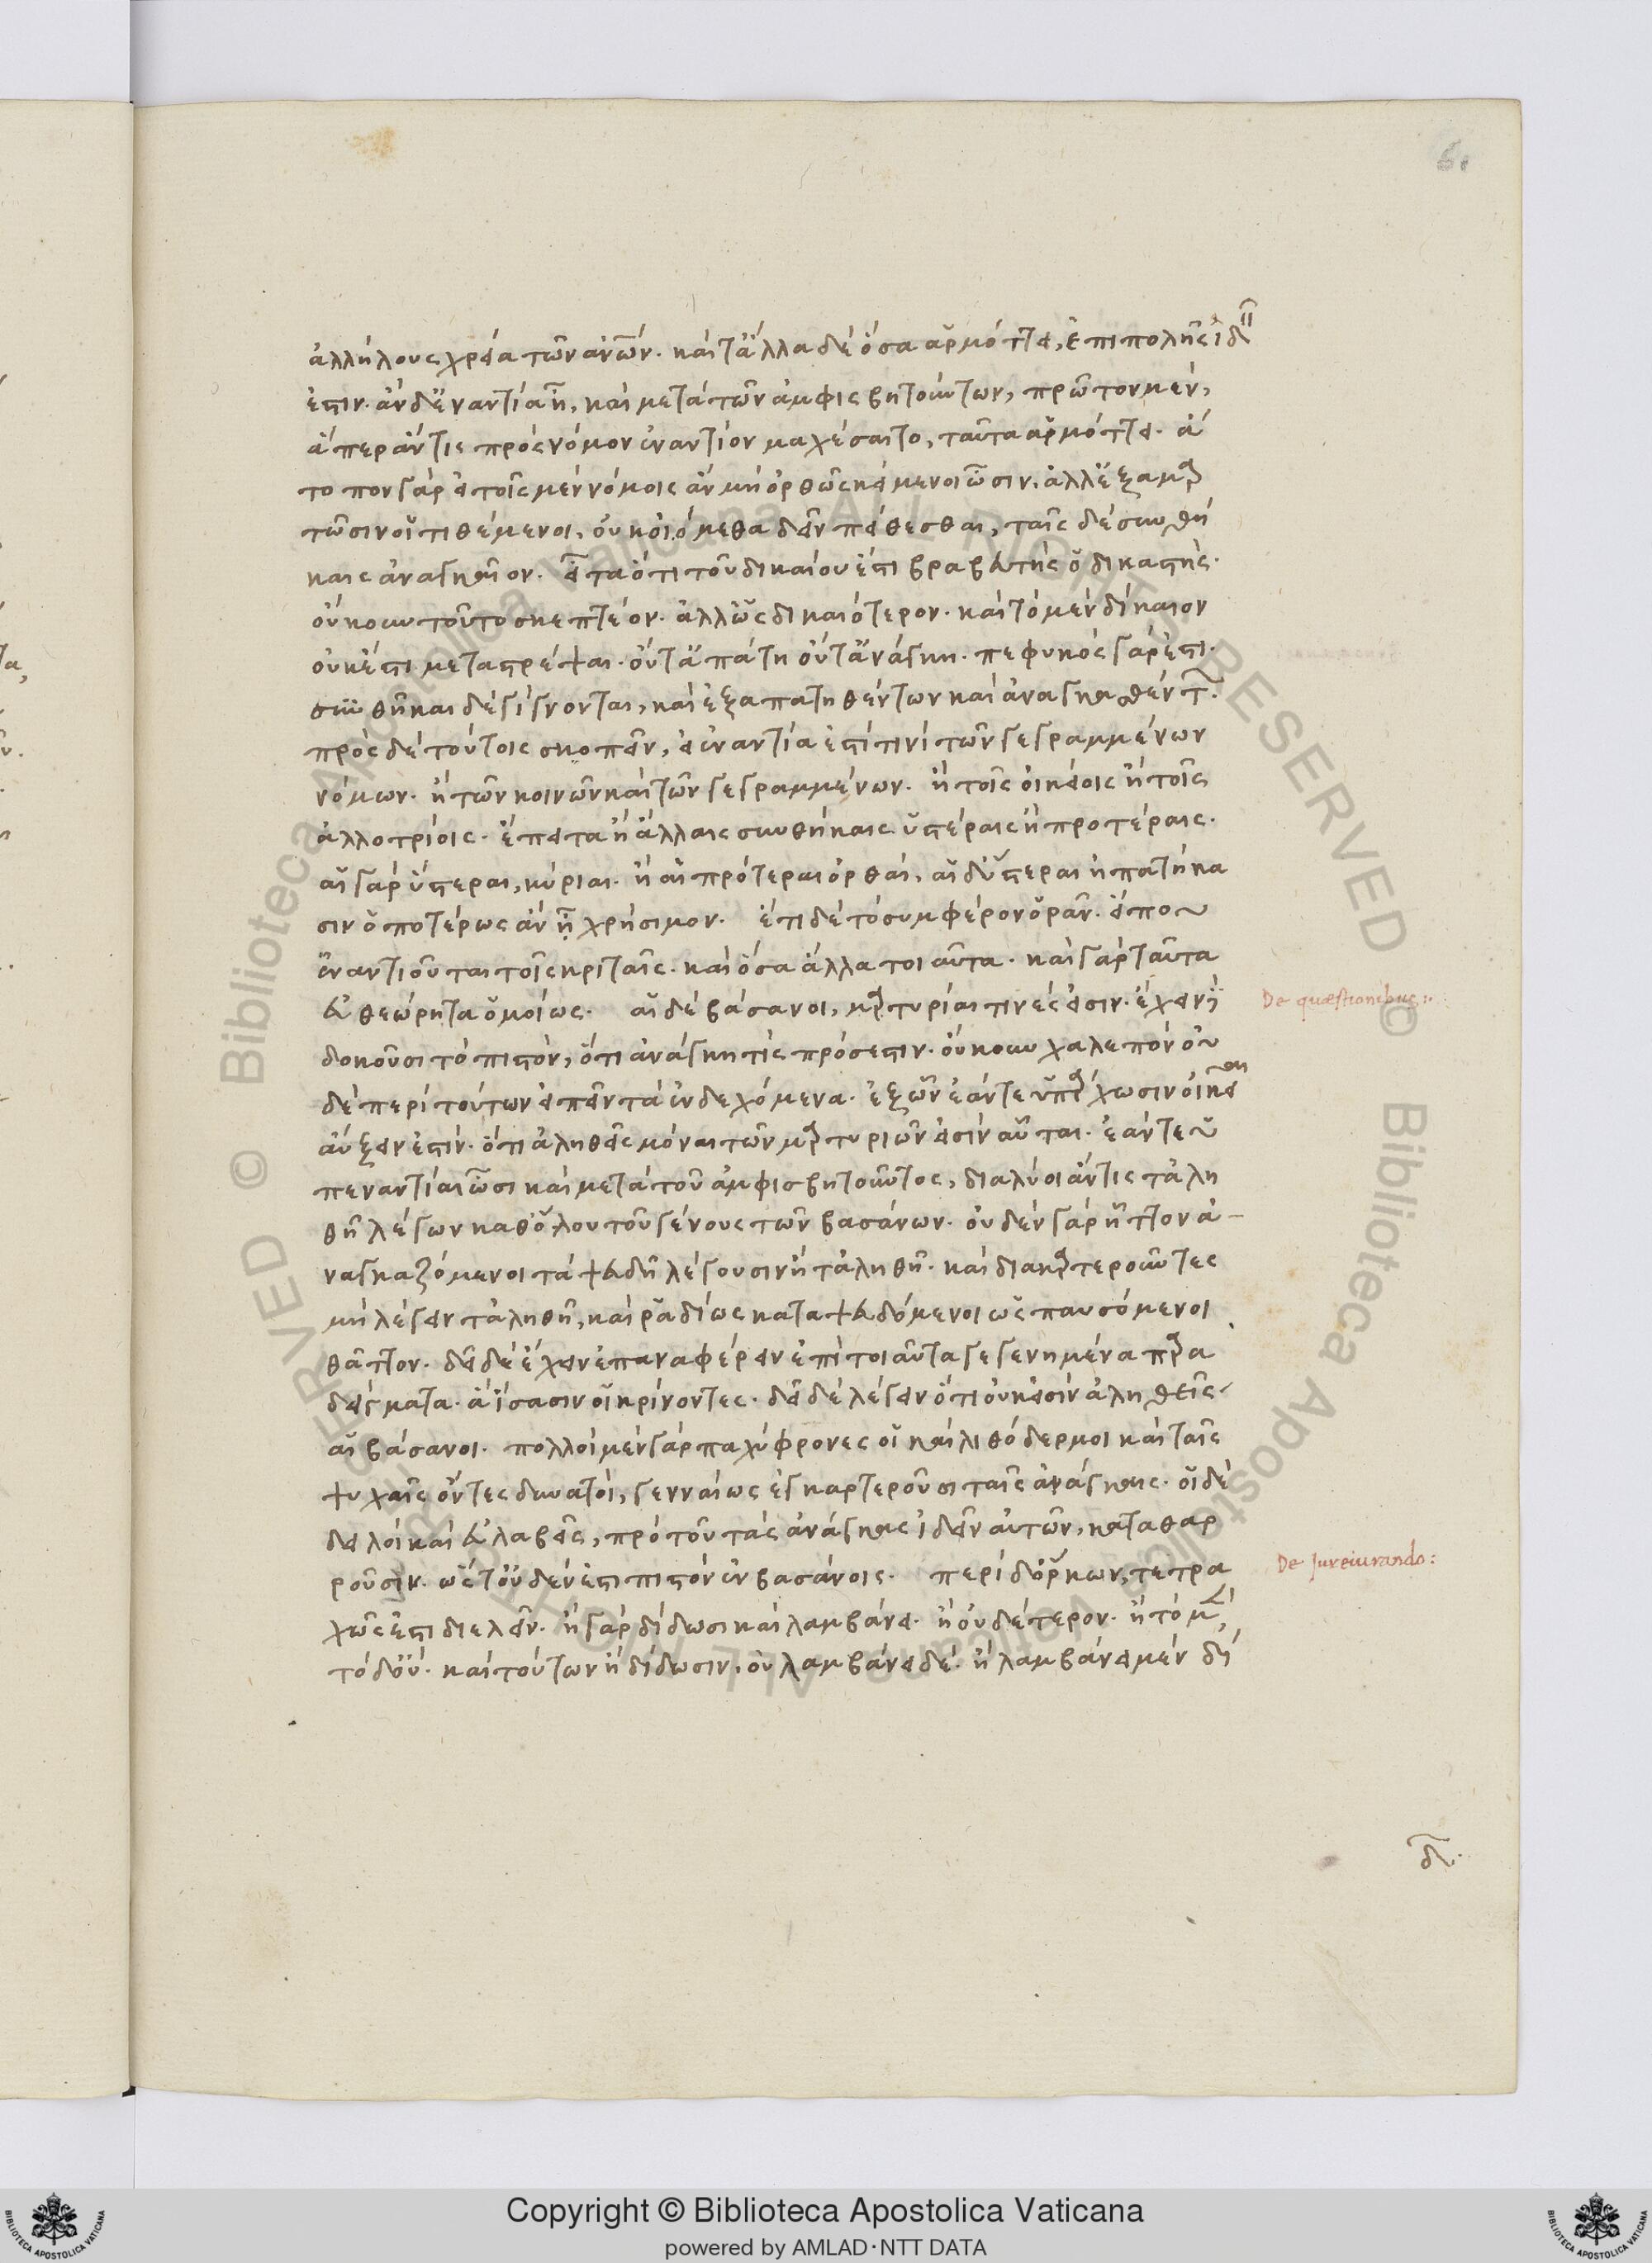 61
ἀλλήλους χρεία τῶν ἀνων. καὶ τἄλλα δὲ ὅσα ἁρμόττει, ἐπιπολῆς ἰδεῖν
ἐστιν. ἂν δ' ἐναντία ᾖ, καὶ μετὰ τῶν ἀμφισβητούντων, πρῶτον μὲν,
ἅπερ ἄν τις πρὸς νόμον ἐναντίον μαχέσαιτο, ταῦτα ἁρμόττει. ἄ
τοπον γὰρ εἰ τοῖς μὲν νόμοις ἂν μὴ ὀρθῶς κείμενοι ὦσιν, ἀλλ' ἐξαμαρ
τῶσιν οἱ τιθέμενοι, οὐκ οἰόμεθα δεῖν πείθεσθαι, ταῖς δὲ συνθή
καις ἀναγκαῖον. εἶτα ὅτι τοῦ δικαίου ἐστὶ βραβευτὴς ὁ δικαστής.
οὔκουν τοῦτο σκεπτέον. ἀλλ' ὡς δικαιότερον. καὶ τὸ μὲν δίκαιον
οὐκ ἔστι μεταστρέψαι. οὔτ' ἀπάτη οὔτ' ἀνάγκη. πεφυκὸς γάρ ἐστι.
συνθῆκαι δὲ γίγνονται, καὶ ἐξαπατηθέντων καὶ ἀναγκασθέντων.
πρὸς δὲ τούτοις σκοπεῖν, εἰ ἐναντία ἐστί τινι τῶν γεγραμμένων
νόμων. ἢ τῶν κοινῶν καὶ τῶν γεγραμμένων. ἢ τοῖς οἰκείοις ἢ τοῖς
ἀλλοτρίοις. ἔπειτα ἢ ἄλλαις συνθήκαις ὑστέραις ἢ προτέραις.
αἱ γὰρ ὕστεραι, κύριαι. ἢ αἱ πρότεραι ὀρθαὶ, αἱ δ' ὕστεραι ἠπατήκα
σιν ὁποτέρως ἂν ᾖ χρήσιμον. ἔτι δὲ τὸ συμφέρον ὁρᾶν. εἴ που
ἐναντιοῦται τοῖς κριταῖς. καὶ ὅσα ἄλλα τοιαῦτα. καὶ γὰρ ταῦτα
εὐθεώρητα ὁμοίως. αἱ δὲ βάσανοι, μαρτυρίαι τινές εἰσιν. ἔχειν
De quæstionibus:.
δοκοῦσι τὸ πιστὸν, ὅτι ἀνάγκη τὶς πρόσεστιν. οὔκουν χαλεπὸν οὐ
δὲ περὶ τούτων εἰπεῖν τὰ ἐνδεχόμενα. ἐξ ὧν ἐάν τε ὑπάρχωσιν οἰκεῖαι
αὔξειν ἐστίν. ὅτι ἀληθεῖς μόναι τῶν μαρτυριῶν εἰσὶν αὗται. ἐάν τε ὑ
πεναντίαι ὦσι καὶ μετὰ τοῦ ἀμφισβητοῦντος, διαλύοι ἄν τις τἀλη
θῆ λέγων καθ' ὅλου τοῦ γένους τῶν βασάνων. οὐδὲν γὰρ ἧττον ἀ-
ναγκαζόμενοι τὰ ψευδῆ λέγουσιν ἢ τἀληθῆ. καὶ διακαρτεροῦντες
μὴ λέγειν τἀληθῆ, καὶ ῥᾳδίως καταψευδόμενοι ὡς παυσόμενοι
θᾶττον. δεῖ δὲ ἔχειν ἐπαναφέρειν ἐπὶ τοιαῦτα γεγενημένα παρα
δείγματα. ἃ ἴσασιν οἱ κρίνοντες. δεῖ δὲ λέγειν ὅτι οὐκ εἰσὶν ἀληθεῖς
αἱ βάσανοι. πολλοὶ μὲν γὰρ παχύφρονες οἱ καὶ λιθόδερμοι καὶ ταῖς
ψυχαῖς ὄντες δυνατοὶ, γενναίως ἐγκαρτεροῦσι ταῖς ἀνάγκαις. οἱ δὲ
δειλοὶ καὶ εὐλαβεῖς, πρὸ τοῦ τὰς ἀνάγκας ἰδεῖν αὐτῶν, καταθαρ
ροῦσιν. ὥστ' οὐδέν ἐστι πιστὸν ἐν βασάνοις. περὶ δ' ὅρκων, τετρα
De Jureiurando:
χῶς ἐστι διελεῖν. ἢ γὰρ δίδωσι καὶ λαμβάνει. ἢ οὐδέτερον. ἢ τὸ μὲν,
τὸ δ' οὔ. καὶ τούτων ἢ δίδωσιν, οὐ λαμβάνει δέ. ἢ λαμβάνει μὲν δί
Copyright © Biblioteca Apostolica Vaticana
powered by AMLAD·NTT DATA